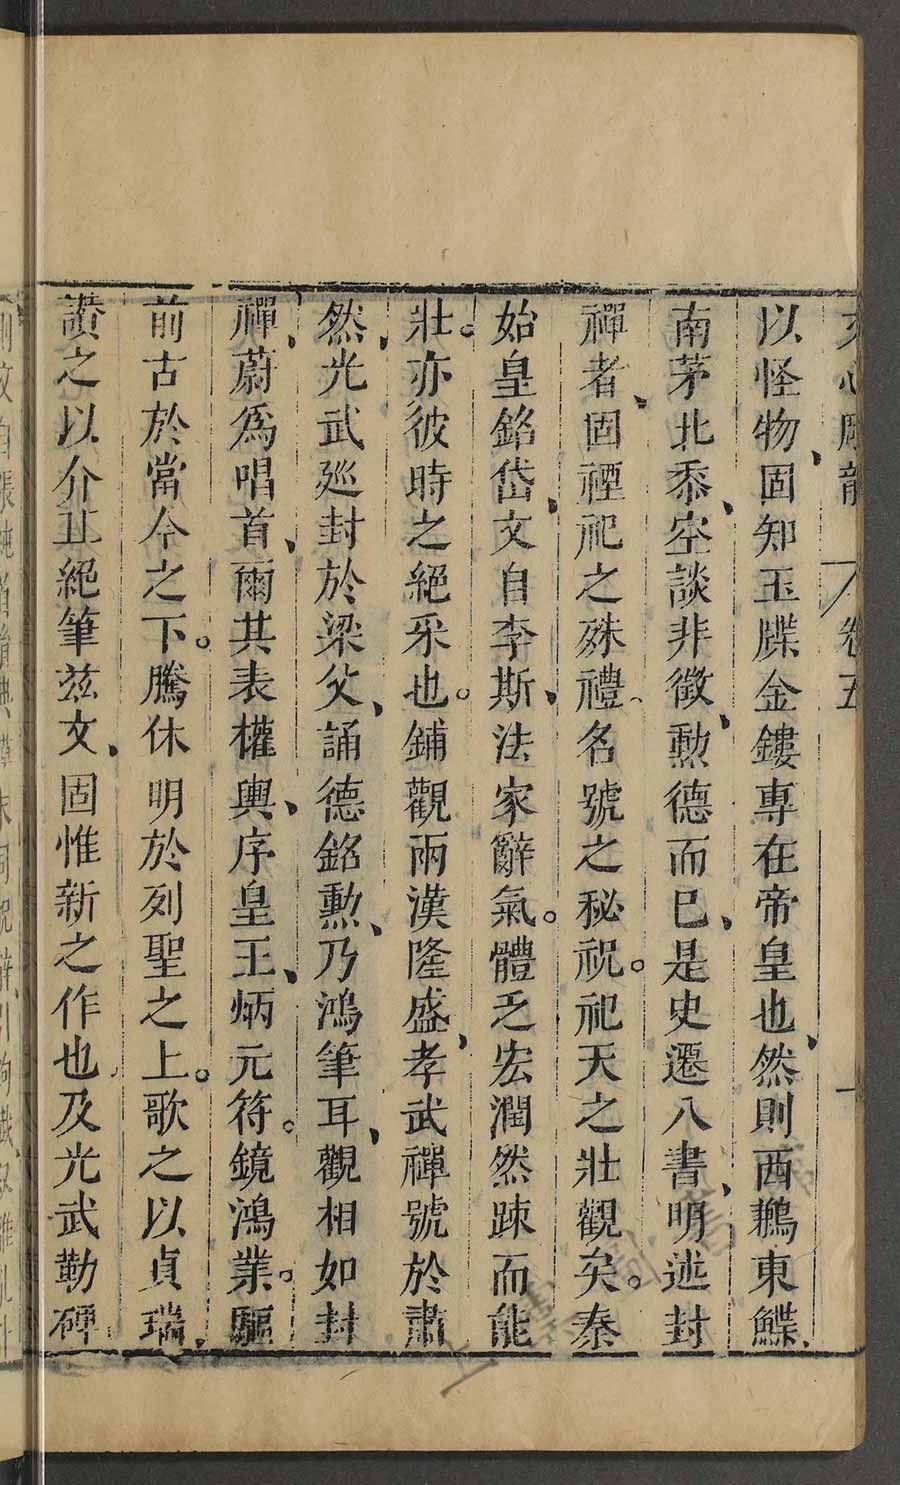 文心雕龍 卷五 一
以怪物、固知玉牒金鏤專在帝皇也、然則西鶼東鰈、
南茅北黍、空談非徵、勳德而已、是史遷八書、明述封
禪者、固禋祀之殊禮、名號之秘祝。祀天之壯觀矣。秦
始皇銘岱、文自李斯、法家辭氣。體乏宏潤然疎而能
壯。亦彼時之絕采也。鋪觀兩漢隆盛、孝武禪號於肅
然、光武廵封於梁父、誦德銘勲、乃鴻筆耳、觀相如封
禪、蔚爲唱首、爾其表權輿、序皇王、炳元符。鏡鴻業。驅
前古於當今之下。騰休明於列聖之上。歌之以貞瑞、
讚之以介丘絕筆兹文、固惟新之作也及光武勒碑